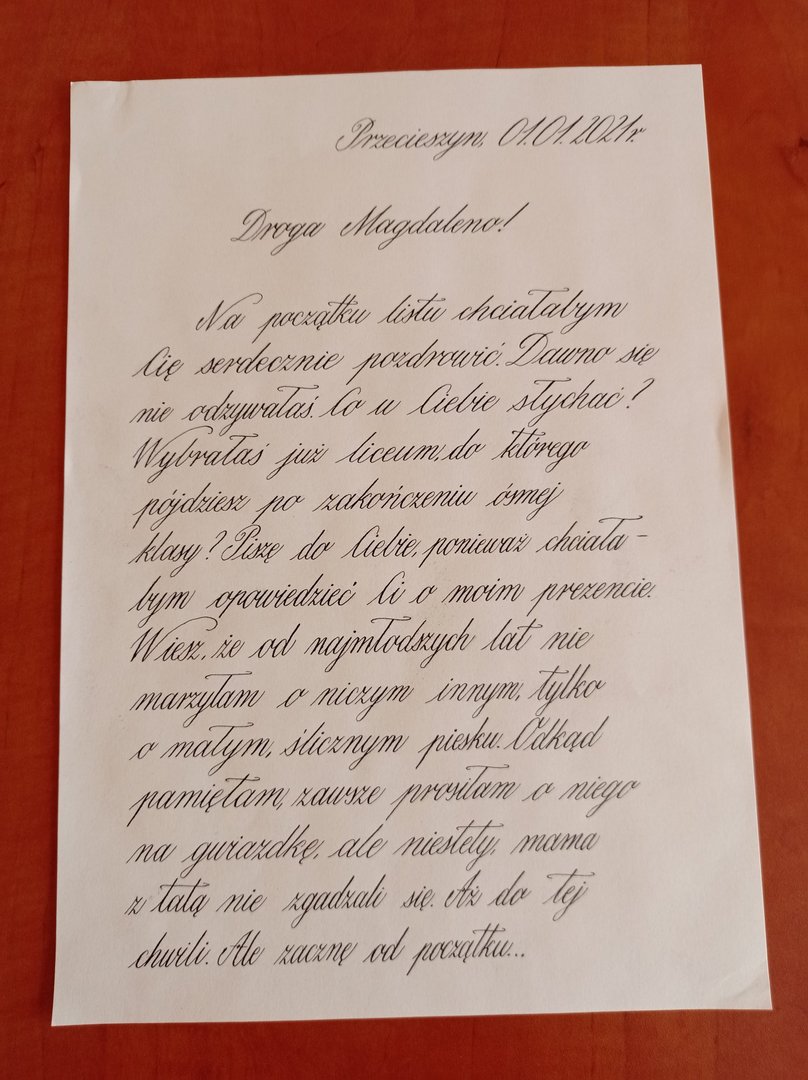 Przecieszyn, 01.01.2021r.
Droga Magdaleno!
Na początku listu chciałabym
Cię serdecznie pozdrowić. Dawno się
nie odzywałaś. Co u Ciebie słychać?
Wybrałaś już liceum, do którego
pójdziesz po zakończeniu ósmej
klasy? Piszę do Ciebie, ponieważ chciała-
bym opowiedzieć Ci o moim prezencie.
Wiesz, że od najmłodszych lat nie
marzyłam o niczym innym, tylko
o małym, ślicznym piesku. Odkąd
pamiętam, zawsze prosiłam o niego
na gwiazdkę, ale niestety, mama
z tatą nie zgadzali się. Aż do tej
chwili. Ale zacznę od początku...